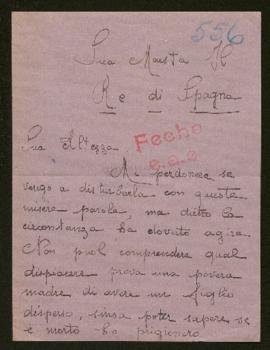 556
Sua Maestà Il
Re di Spagna
Fecho
Sua Altezza
Mi perdonerà se
vengo a disturbarla con queste
misere parole, ma dietro la
circostanza ho dovuto agire
Non puol comprendere qual
dispiacere prova una povera
madre di avere un figlio
disperso, sensa poter sapere se
è morto ho prigionero